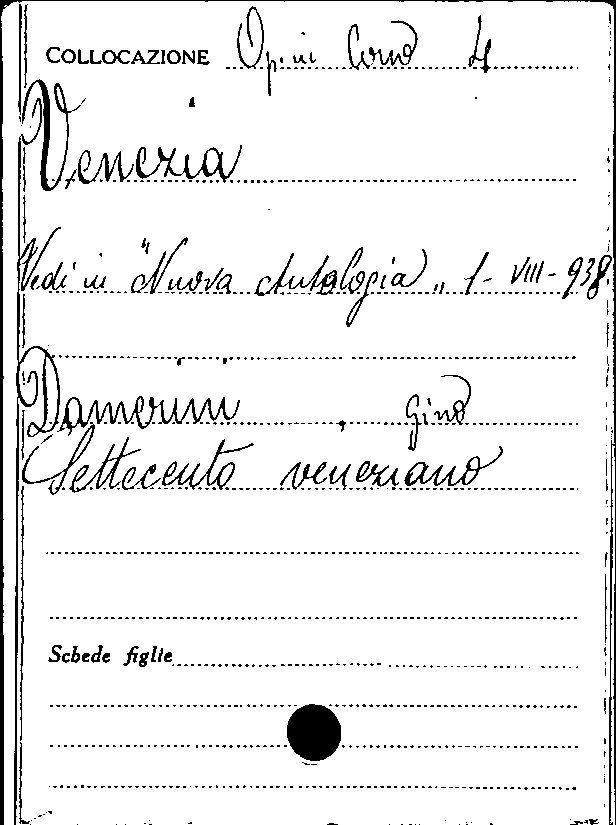 COLLOCAZIONE Op. in Corso 4
Venezia
Vedi in "Nuova Antologia" 1 - VIII - 938
Damerini, Gino
Settecento veneziano
Schede figlie